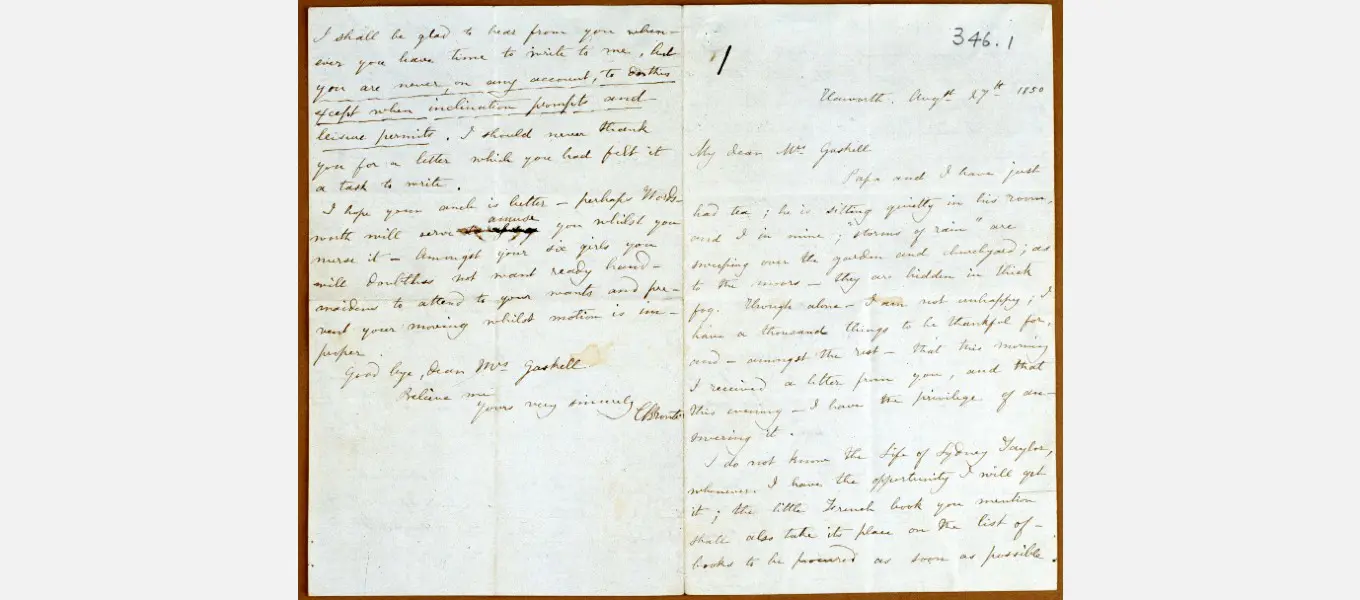 I shall be glad to hear from you when-
ever you have time to write to me, but
you are never, on any account, to do this
except when inclination prompts and
leisure permits. I should never thank
you for a letter which you had felt it
a task to write.
I hope your ancle is better - perhaps Words-
worth will serve to amuse you whilst you
nurse it - Amongst your six girls you
will doubtless not want ready hand-
maidens to attend to your wants and pre-
vent your moving whilst motion is im-
proper.
Good bye, dear Mrs Gaskell
Believe me
Yours very sincerely
CBrontë
346.1
1
Haworth. Augst 27th 1850
My dear Mrs Gaskell
Papa and I have just
had tea; he is sitting quietly in his room,
and I in mine; "storms of rain" are
sweeping over the garden and churchyard; as
to the moors - they are hidden in thick
fog. Though alone - I am not unhappy; I
have a thousand things to be thankful for,
and - amongst the rest - that this morning
I received a letter from you, and that
this evening - I have the privilege of an-
swering it.
I do not know the Life of Sydney Taylor,
whenever I have the opportunity I will get
it; the little French book you mention
shall also take its place on the list of -
books to be procured as soon as possible.